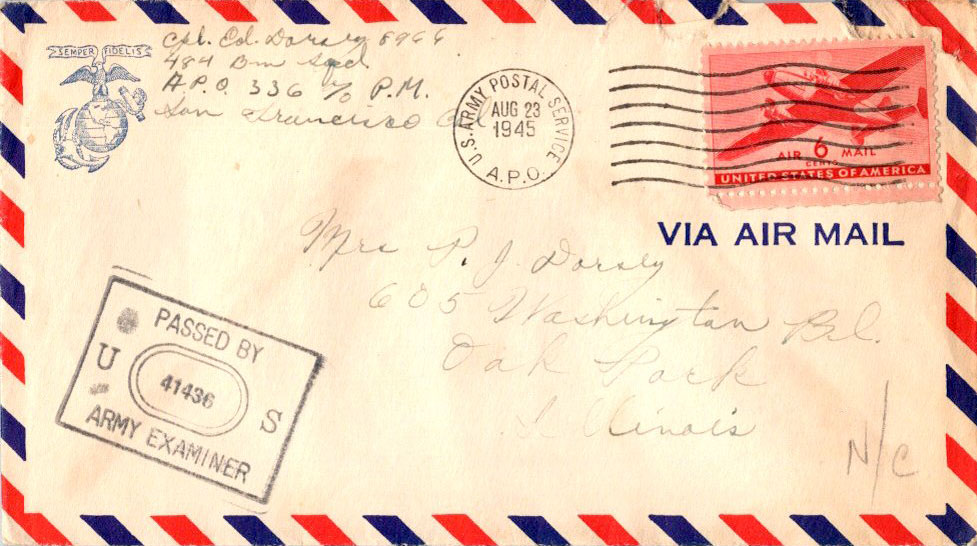 SEMPER FIDELIS
Cpl. Ed. Dorsey 8966
484 Bm Sqd
A.P.O. 336 c/o P.M.
San Francisco Cal
U.S. ARMY POSTAL SERVICE
AUG 23
1945
A.P.O.
AIR 6 MAIL
CENTS
UNITED STATES OF AMERICA
VIA AIR MAIL
Mrs P. J. Dorsey
605 Washington Bl.
Oak Park
Illinois
PASSED BY
U 41436 S
ARMY EXAMINER
N/C